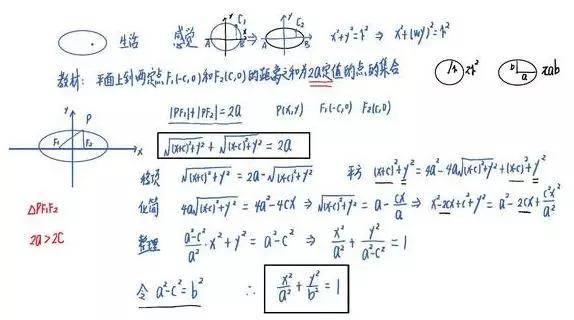 生活 感觉 y C₁ A B x ⇒ y C₂ A B ⇒ x²+y²=r² ⇒ x²+(wy)²=r²
教材: 平面上到两定点F₁(-c,0)和F₂(c,0)的距离之和为2a定值的点的集合 r πr² b a πab
|PF₁|+|PF₂|=2a P(x,y) F₁(-c,0) F₂(c,0)
y P F₁ F₂ x
√(x+c)²+y² + √(x-c)²+y² = 2a
移项 √(x+c)²+y² = 2a-√(x-c)²+y² 平方 (x+c)²+y² = 4a²-4a√(x-c)²+y²+(x-c)²+y²
化简 4a√(x-c)²+y² = 4a²-4cx ⇒ √(x-c)²+y² = a-cx/a ⇒ x²-2cx+c²+y² = a²-2cx+c²x²/a²
△PF₁F₂
2a>2c
整理 (a²-c²)/a²·x²+y² = a²-c² ⇒ x²/a²+y²/(a²-c²)=1
令 a²-c²=b² ∴ x²/a²+y²/b²=1